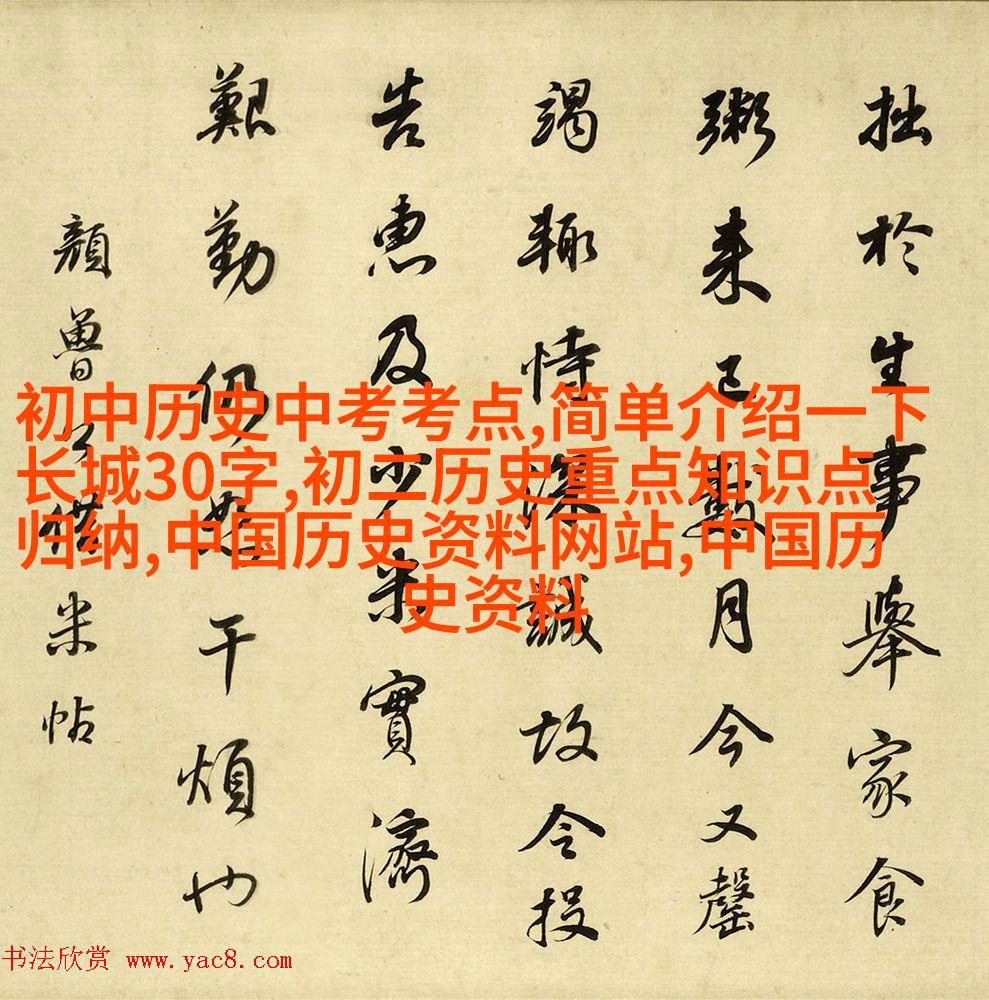 拙於生事舉家食
粥来已數月今又罄
竭輙恃深誠故令投
告惠及少米實濟
艱勤仍恕干煩也
顔魯公借米帖
初中历史中考考点,简单介绍一下
长城30字,初二历史重点知识点
归纳,中国历史资料网站,中国历
史资料
书法欣赏 www.yac8.com